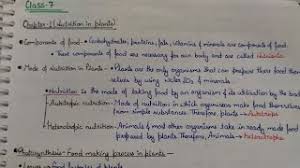 Class-7
Chapter-1 (Nutrition in plants)
Components of food - Carbohydrates, proteins, fats, vitamins & minerals are components of food.
These components of food are necessary for our body and are called Nutrients
Mode of Nutrition in Plants - Plants are the only organisms that can prepare their food them
selves by using
Nutrition is the mode of taking food by an organism and its utilisation by the body
Autotrophic nutrition - Mode of nutrition in which organisms make food themselves
from simple substances. Therefore, plants - Autotrophs
Heterotrophic nutrition - Animals & most other organisms take in ready made food
prepared by plants. Therefore, Animals - Heterotrophs
Photosynthesis - Food making process in plants -